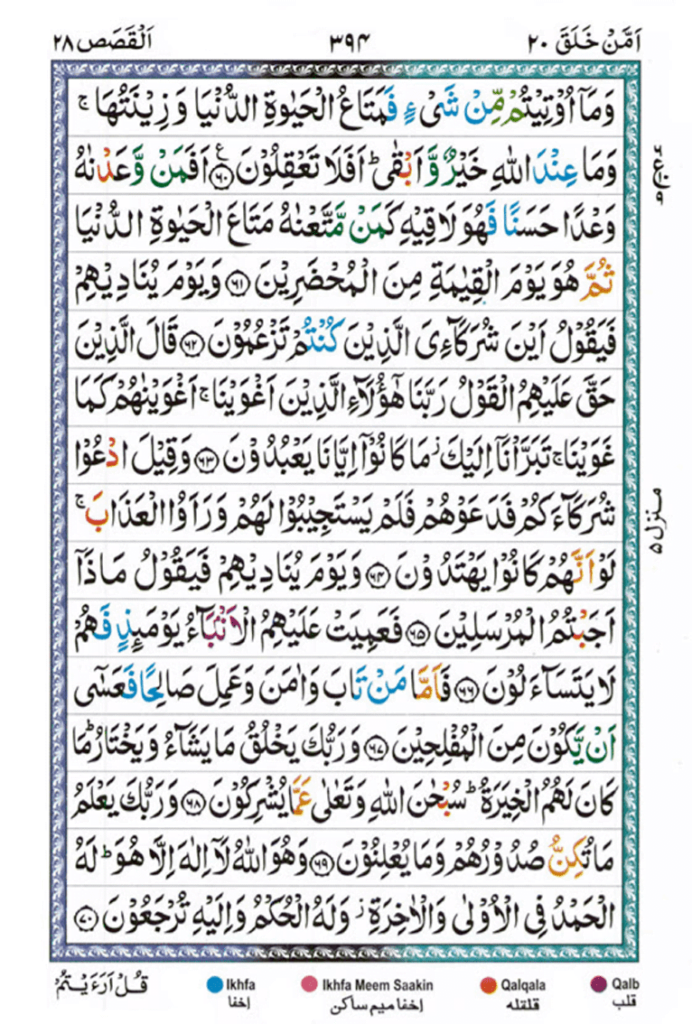 اَمَّنْ خَلَقَ ٢٠ ٣٩٤ اَلْقَصَص ٢٨
وَمَآ اُوْتِيْتُمْ مِّنْ شَىْءٍ فَمَتَاعُ الْحَيٰوةِ الدُّنْيَا وَزِيْنَتُهَا ۚ
وَمَا عِنْدَ اللّٰهِ خَيْرٌ وَّاَبْقٰى ؕ اَفَلَا تَعْقِلُوْنَ ﴿۶۰﴾ اَفَمَنْ وَّعَدْنٰهُ
وَعْدًا حَسَنًا فَهُوَ لَاقِيْهِ كَمَنْ مَّتَّعْنٰهُ مَتَاعَ الْحَيٰوةِ الدُّنْيَا
ثُمَّ هُوَ يَوْمَ الْقِيٰمَةِ مِنَ الْمُحْضَرِيْنَ ﴿۶۱﴾ وَيَوْمَ يُنَادِيْهِمْ
فَيَقُوْلُ اَيْنَ شُرَكَآءِىَ الَّذِيْنَ كُنْتُمْ تَزْعُمُوْنَ ﴿۶۲﴾ قَالَ الَّذِيْنَ
حَقَّ عَلَيْهِمُ الْقَوْلُ رَبَّنَا هٰٓؤُلَآءِ الَّذِيْنَ اَغْوَيْنَا ۚ اَغْوَيْنٰهُمْ كَمَا
غَوَيْنَا ۚ تَبَرَّاْنَاۤ اِلَيْكَ ز مَا كَانُوْۤا اِيَّانَا يَعْبُدُوْنَ ﴿۶۳﴾ وَقِيْلَ ادْعُوْا
شُرَكَآءَكُمْ فَدَعَوْهُمْ فَلَمْ يَسْتَجِيْبُوْا لَهُمْ وَرَاَوُا الْعَذَابَ ۚ
لَوْ اَنَّهُمْ كَانُوْا يَهْتَدُوْنَ ﴿۶۴﴾ وَيَوْمَ يُنَادِيْهِمْ فَيَقُوْلُ مَاذَاۤ
اَجَبْتُمُ الْمُرْسَلِيْنَ ﴿۶۵﴾ فَعَمِيَتْ عَلَيْهِمُ الْاَنْۢبَآءُ يَوْمَئِذٍ فَهُمْ
لَا يَتَسَآءَلُوْنَ ﴿۶۶﴾ فَاَمَّا مَنْ تَابَ وَاٰمَنَ وَعَمِلَ صَالِحًا فَعَسٰٓى
اَنْ يَّكُوْنَ مِنَ الْمُفْلِحِيْنَ ﴿۶۷﴾ وَرَبُّكَ يَخْلُقُ مَا يَشَآءُ وَيَخْتَارُ ؕ مَا
كَانَ لَهُمُ الْخِيَرَةُ ؕ سُبْحٰنَ اللّٰهِ وَتَعٰلٰى عَمَّا يُشْرِكُوْنَ ﴿۶۸﴾ وَرَبُّكَ يَعْلَمُ
مَا تُكِنُّ صُدُوْرُهُمْ وَمَا يُعْلِنُوْنَ ﴿۶۹﴾ وَهُوَ اللّٰهُ لَاۤ اِلٰهَ اِلَّا هُوَ ؕ لَهُ
الْحَمْدُ فِى الْاُوْلٰى وَالْاٰخِرَةِ ز وَلَهُ الْحُكْمُ وَاِلَيْهِ تُرْجَعُوْنَ ﴿۷۰﴾
منزل ۵
قُلْ اَرَءَيْتُمْ
Ikhfa Ikhfa Meem Saakin Qalqala Qalb
إخفا إخفا ميم ساكن قلقله قلب